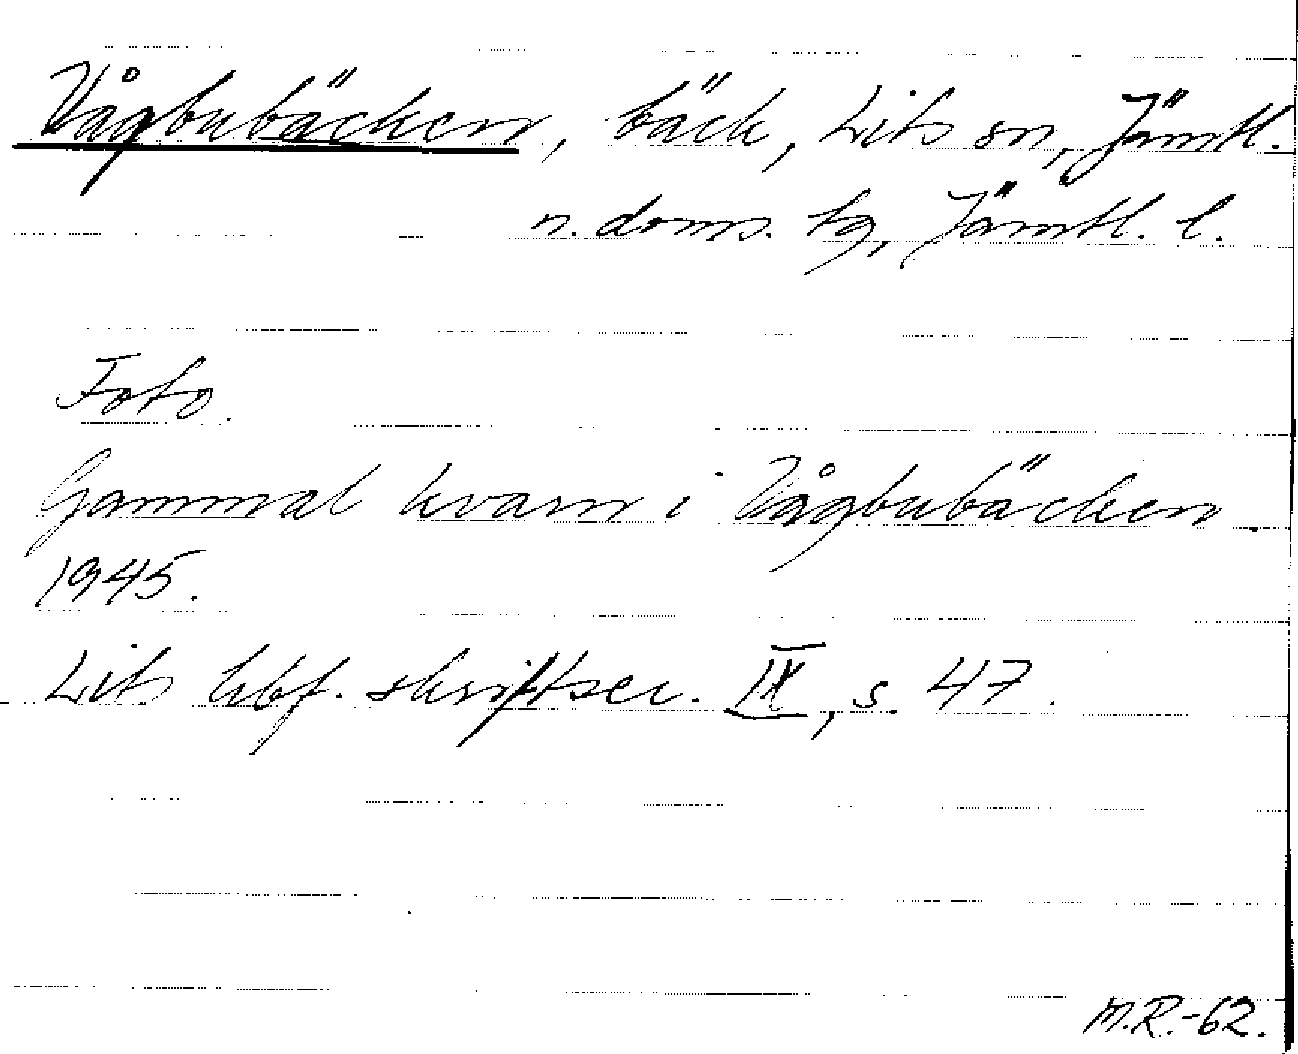 Vågbubäcken, bäck, Lits sn, Jämtl.
n. doms. tg, Jämtl. l.
Foto.
Gammal kvarn i Vågbubäcken
1945.
Lits hbf. skriftser. IX, s. 47.
M.R.-62.